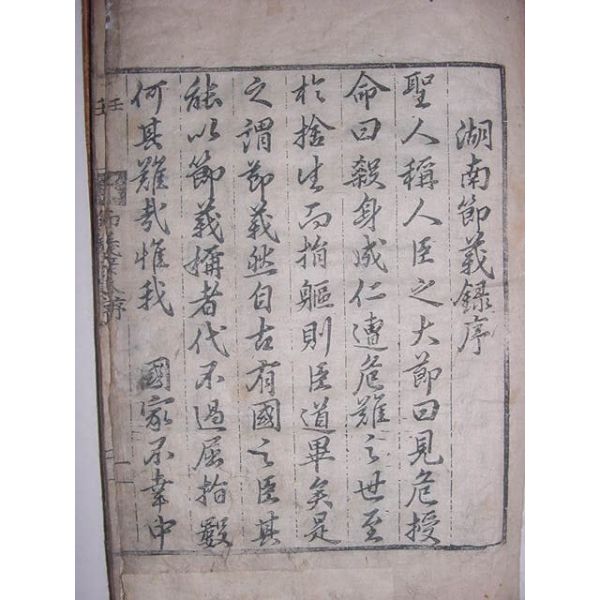 湖南節義録序
聖人稱人臣之大節曰見危授
命曰殺身成仁遭危難之世至
於捨生而捐軀則臣道畢矣是
之謂節義然自古有國之臣其
能以節義稱者代不過屈指數
何其難哉惟我　國家不幸中